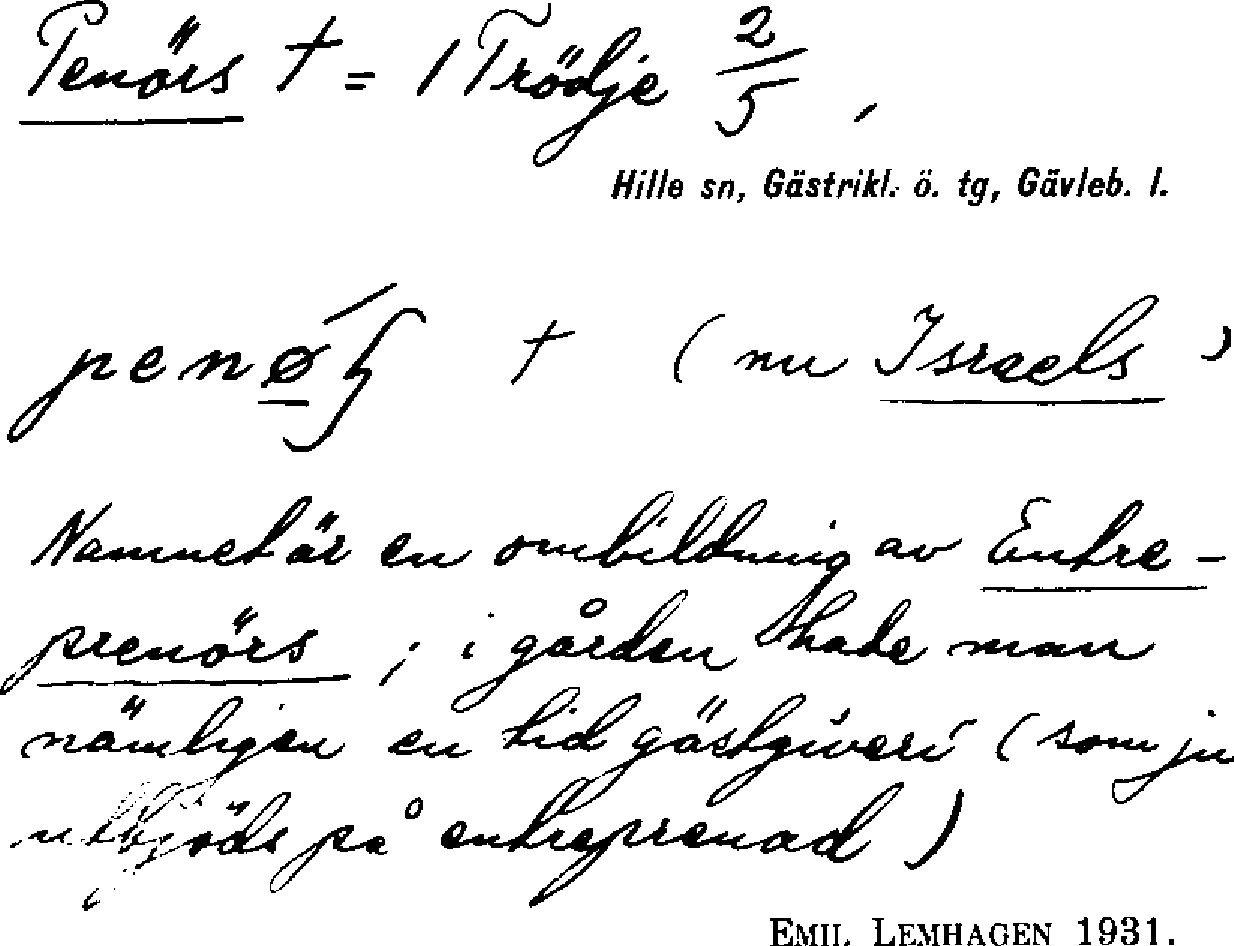 Penörs † = / Trödje 2/5,
Hille sn, Gästrikl. ö. tg, Gävleb. l.
† (nu Israels)
Namnet är en ombildning av Entre-
prenörs ; i gården hade man
nämligen en tid gästgiveri (som ju
utbjöds på entreprenad)
EMIL LEMHAGEN 1931.